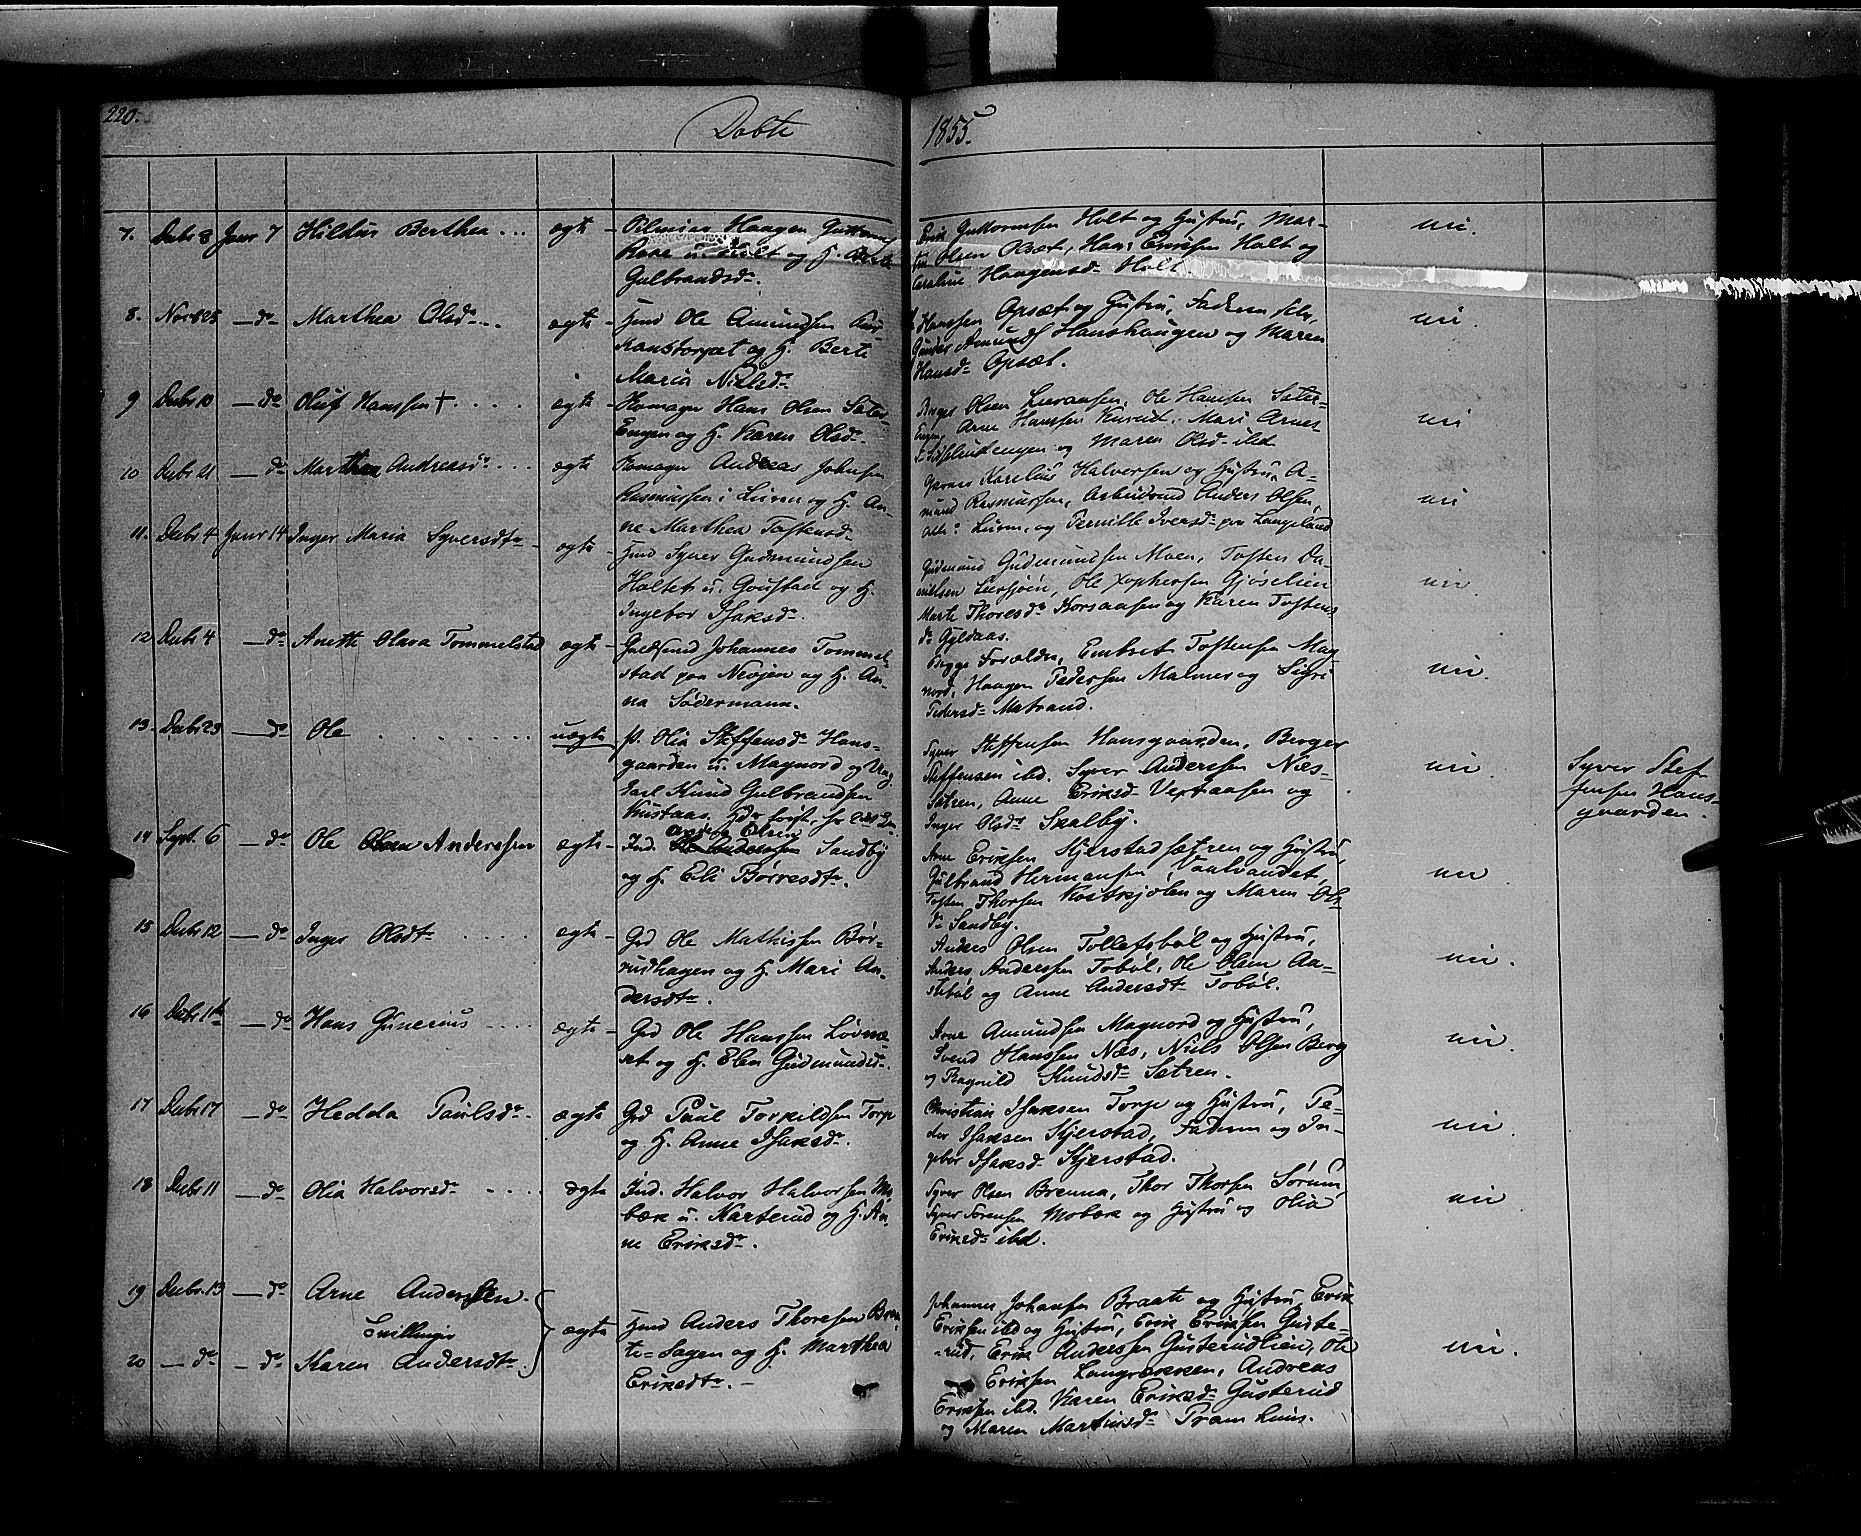 220. Døbte 1855.
7. Decbr 8 Januar 7 Hildus Berthea ... ægte - Haagen
u. Holt og H. Berte
Gulbrandsdr.
Erik Guttormsen Holt og Hustru, Mar-
Olsen Hans Eriksen Holt og
Caroline Haagensdr Holt.
nei.
8. Novbr 28 — do — Marthea Olsd.... ægte - Hmd Ole Amundsen
og H. Berte
Maria Nielsdr
Hanssen Opsæt og Hustru, Faderen selv,
Gunder Amunds Hanshaugen og Maren
Hansdr Opsæt.
nei.
9 Decbr 10 — do Oluf Hanssen + . . . . ægte - Hans Olsen Sæter-
Engen og H. Karen Olsdr.
Berger Olsen Ole Hansen Sæter-
Engen, Arne Hanssen Mari Arnes-
og Maren Olsd ibd
nei
10 Decbr 21 — do Marthea Andreasdr ... ægte Andreas Johnsen
Rasmussen i og H. An-
ne Marthea Tostensdr
Karelius Halvorsen og Hustru, A-
mund Rasmussen, Anders Olsen,
og Pernille Iversdr paa Langeland
nei
11. Decbr 4 Januar 14 Inger Maria Syversdtr - ægte Hmd Syver Gudmundsen
Holtet u. og H.
Ingebor Isaksdr.
Gudmund Gudmundsen Moen, Tosten Da-
nielsen Ole Xophersen Gjøselien
Marte Thoresdr Korsaasen og Karen Tostens
dr Gyldaas.
nei
12 Decbr 4 — do Anette Olava Tommelstad ægte - Johannes Tommel-
stad paa og H. An-
na Södermann.
Begge Forældre, Embret Tostensen Mag-
nord, Haagen Pedersen Malmer og Sigri
Pedersdr Matrand.
nei.
13. Decbr 23 — do Ole . . . . . . . uægte p. Olia Steffensdr Hans-
gaarden u. Magnord og Ung
karl Knud Gulbrandsen
Syver Steffensen Hansgaarden, Berger
Steffensen ibd. Syver Anderssen Næs-
Sætren, Anne Eriksdr og
Inger Olsdr Skalby.
nei.
Syver Stef-
fensen Hans-
gaarden.
14 Sept. 6 — do Ole Olsen Anderssen ægte - Ind. Anders Olsen Sandby
og H. Eli Børresdtr.
Arne Eriksen Skjerstadsætren og Hustru,
Gulbrand Hermansen, Vaalvandet,
Tosten Thorsen og Maren Ols-
dr Sandby.
nei
15 Decbr 12 — do Inger Olsdtr . . . . ægte - Grd Ole Mathissen Bør-
rudhagen og H. Mari An-
dersdtr.
Anders Olsen Tollefsbøl og Hustru,
Anders Anderssen Tobøl, Ole Olsen Aa-
stebøl og Anne Andersdtr Tobøl.
nei.
16 Decbr — do Hans Gunerius .... ægte - Grd Ole Hanssen Løvnæ-
set og H. Elen Gudmundsdr.
Arne Amundsen Magnord og Hustru,
Svend Hanssen Næs, Niels Olsen Berg
og Ragnild Knudsdr Sætren.
nei.
17 Decbr 17 — do Hedda Paulsdr. ægte Grd Paul Torkildsen Torp
og H. Anne Isaksdr.
Christian Isaksen Torp og Hustru, Pe-
der Isaksen Skjerstad, Faderen og In-
gebor Isaksd Skjerstad.
nei.
18 Decbr 11 — do Olia Halvorsdr .... ægte Ind. Halvor Halvorsen Mo-
bæk u. Narterud og H. An-
ne Eriksdr.
Syver Olsen Brenna, Thor Thorsen Sørum,
Syver Sørensen Mobæk og Hustru og Olia
Eriksdr ibd.
nei
19 Decbr. 13 — do Arne Anderssen.
Tvillinger
20 — do — — do Karen Andersdtr
ægte Hmd Anders Thoresen
og H. Marthea
Eriksdtr. -
Johannes Johansen Braate og Hustru, Erik
Eriksen ibd og Hustru, Erik Eriksen Guste-
rud, Erik Anderssen Gusterudlien, Ole
Eriksen Langrækken, Andreas
Eriksen ibd. Karen Eriksdr Gusterud
og Maren Martinsdr
nei.